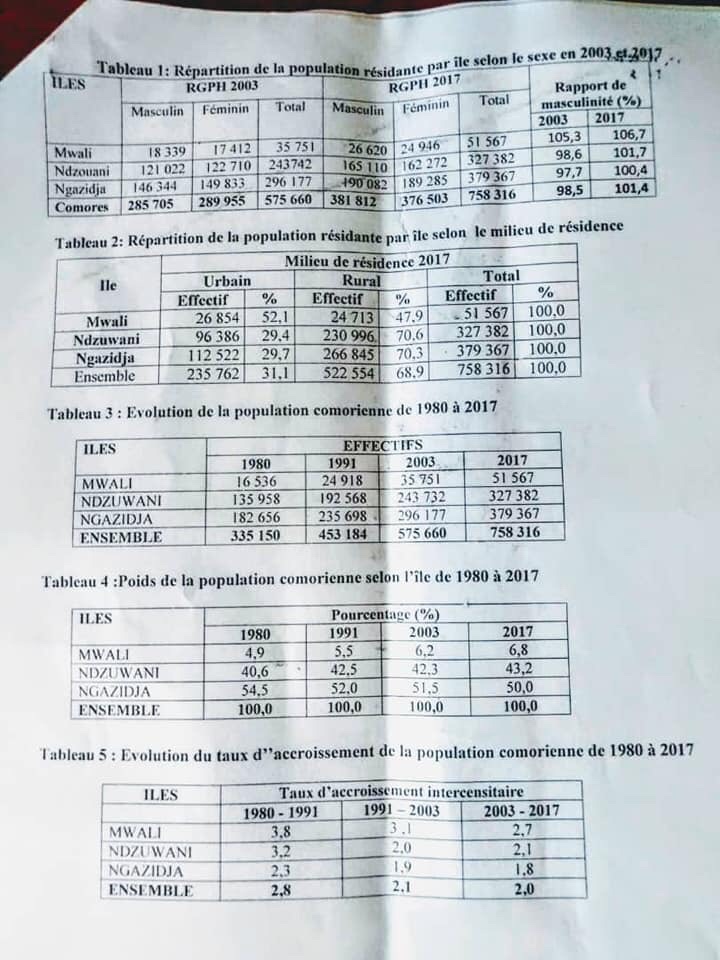 Tableau 1: Répartition de la population résidante par île selon le sexe en 2003 et 2017
ILES RGPH 2003 RGPH 2017 Rapport de masculinité (%)
Masculin Féminin Total Masculin Féminin Total 2003 2017
Mwali 18 339 17 412 35 751 26 620 24 946 51 567 105,3 106,7
Ndzouani 121 022 122 710 243742 165 110 162 272 327 382 98,6 101,7
Ngazidja 146 344 149 833 296 177 190 082 189 285 379 367 97,7 100,4
Comores 285 705 289 955 575 660 381 812 376 503 758 316 98,5 101,4
Tableau 2: Répartition de la population résidante par île selon le milieu de résidence
Ile Milieu de résidence 2017
Urbain Rural Total
Effectif % Effectif % Effectif %
Mwali 26 854 52,1 24 713 47,9 51 567 100,0
Ndzuwani 96 386 29,4 230 996 70,6 327 382 100,0
Ngazidja 112 522 29,7 266 845 70,3 379 367 100,0
Ensemble 235 762 31,1 522 554 68,9 758 316 100,0
Tableau 3 : Evolution de la population comorienne de 1980 à 2017
ILES EFFECTIFS
1980 1991 2003 2017
MWALI 16 536 24 918 35 751 51 567
NDZUWANI 135 958 192 568 243 732 327 382
NGAZIDJA 182 656 235 698 296 177 379 367
ENSEMBLE 335 150 453 184 575 660 758 316
Tableau 4 :Poids de la population comorienne selon l'île de 1980 à 2017
ILES Pourcentage (%)
1980 1991 2003 2017
MWALI 4,9 5,5 6,2 6,8
NDZUWANI 40,6 42,5 42,3 43,2
NGAZIDJA 54,5 52,0 51,5 50,0
ENSEMBLE 100,0 100,0 100,0 100,0
Tableau 5 : Evolution du taux d''accroissement de la population comorienne de 1980 à 2017
ILES Taux d'accroissement intercensitaire
1980 - 1991 1991 – 2003 2003 - 2017
MWALI 3,8 3,1 2,7
NDZUWANI 3,2 2,0 2,1
NGAZIDJA 2,3 1,9 1,8
ENSEMBLE 2,8 2,1 2,0